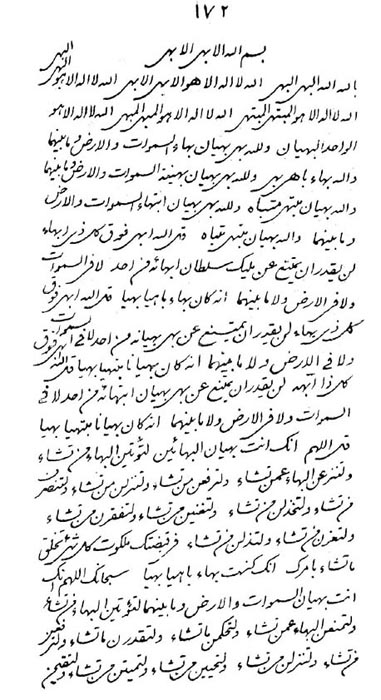 ١٧٢
بسم الله الابهى الابهى
بالله الله البهى البهى الله لا اله الا هو الابهى الابهى الله لا اله الا هو البهى البهى
الله لا اله الا هو المبتهى المبتهى الله لا اله الا هو المبهى المبهى الله لا اله الا هو
الواحد البهيان ولله بهى بهيان بهاء السموات والارض وما بينهما
والله بهاء باهى بهى ولله بهى بهيان بهينة السموات والارض وما بينهما
والله بهيان مبتهى متباه ولله بهى بهيان ابتهاء السموات والارض
وما بينهما والله بهيان مبتهى متباه قل الله ابهى فوق كل ذى ابهاء
لن يقدر ان يمتنع عن مليك سلطان ابهائه من احد لا فى السموات
ولا فى الارض ولا ما بينهما انه كان بهاء باهيا بهيا قل الله ابهى فوق
كل ذى بهاء لن يقدر ان يمتنع عن بهى بهيانه من احد لا فى السموات
ولا فى الارض ولا ما بينهما انه كان بهيانا مبتهيا بهيا قل الله ابهى فوق
كل ذا ابتهاء لن يقدر ان يمتنع عن بهى بهيان ابتهائه من احد لا فى
السموات ولا فى الارض ولا ما بينهما انه كان بهيانا مبتهيا بهيا
قل اللهم انك انت بهيان البهائين لتؤتين البهاء من تشاء
ولتنزعن البهاء عمن تشاء ولترفعن من تشاء ولتنزلن من تشاء ولتنصرن
من تشاء ولتخذلن من تشاء ولتغنين من تشاء ولتفقرن من تشاء
ولتعزن من تشاء ولتذلن من تشاء فى قبضتك ملكوت كل شئ تخلق
ما تشاء بامرك انك كنت بهاء باهيا بهيا سبحانك اللهم انك
انت بهيان السموات والارض وما بينهما لتؤتين البهاء من تشاء
ولتمنعن البهاء عمن تشاء ولتحكمن ما تشاء ولتقدرن ما تشاء ولترفعن
من تشاء ولتنزلن من تشاء ولتحيين من تشاء ولتميتن من تشاء ولتغنين